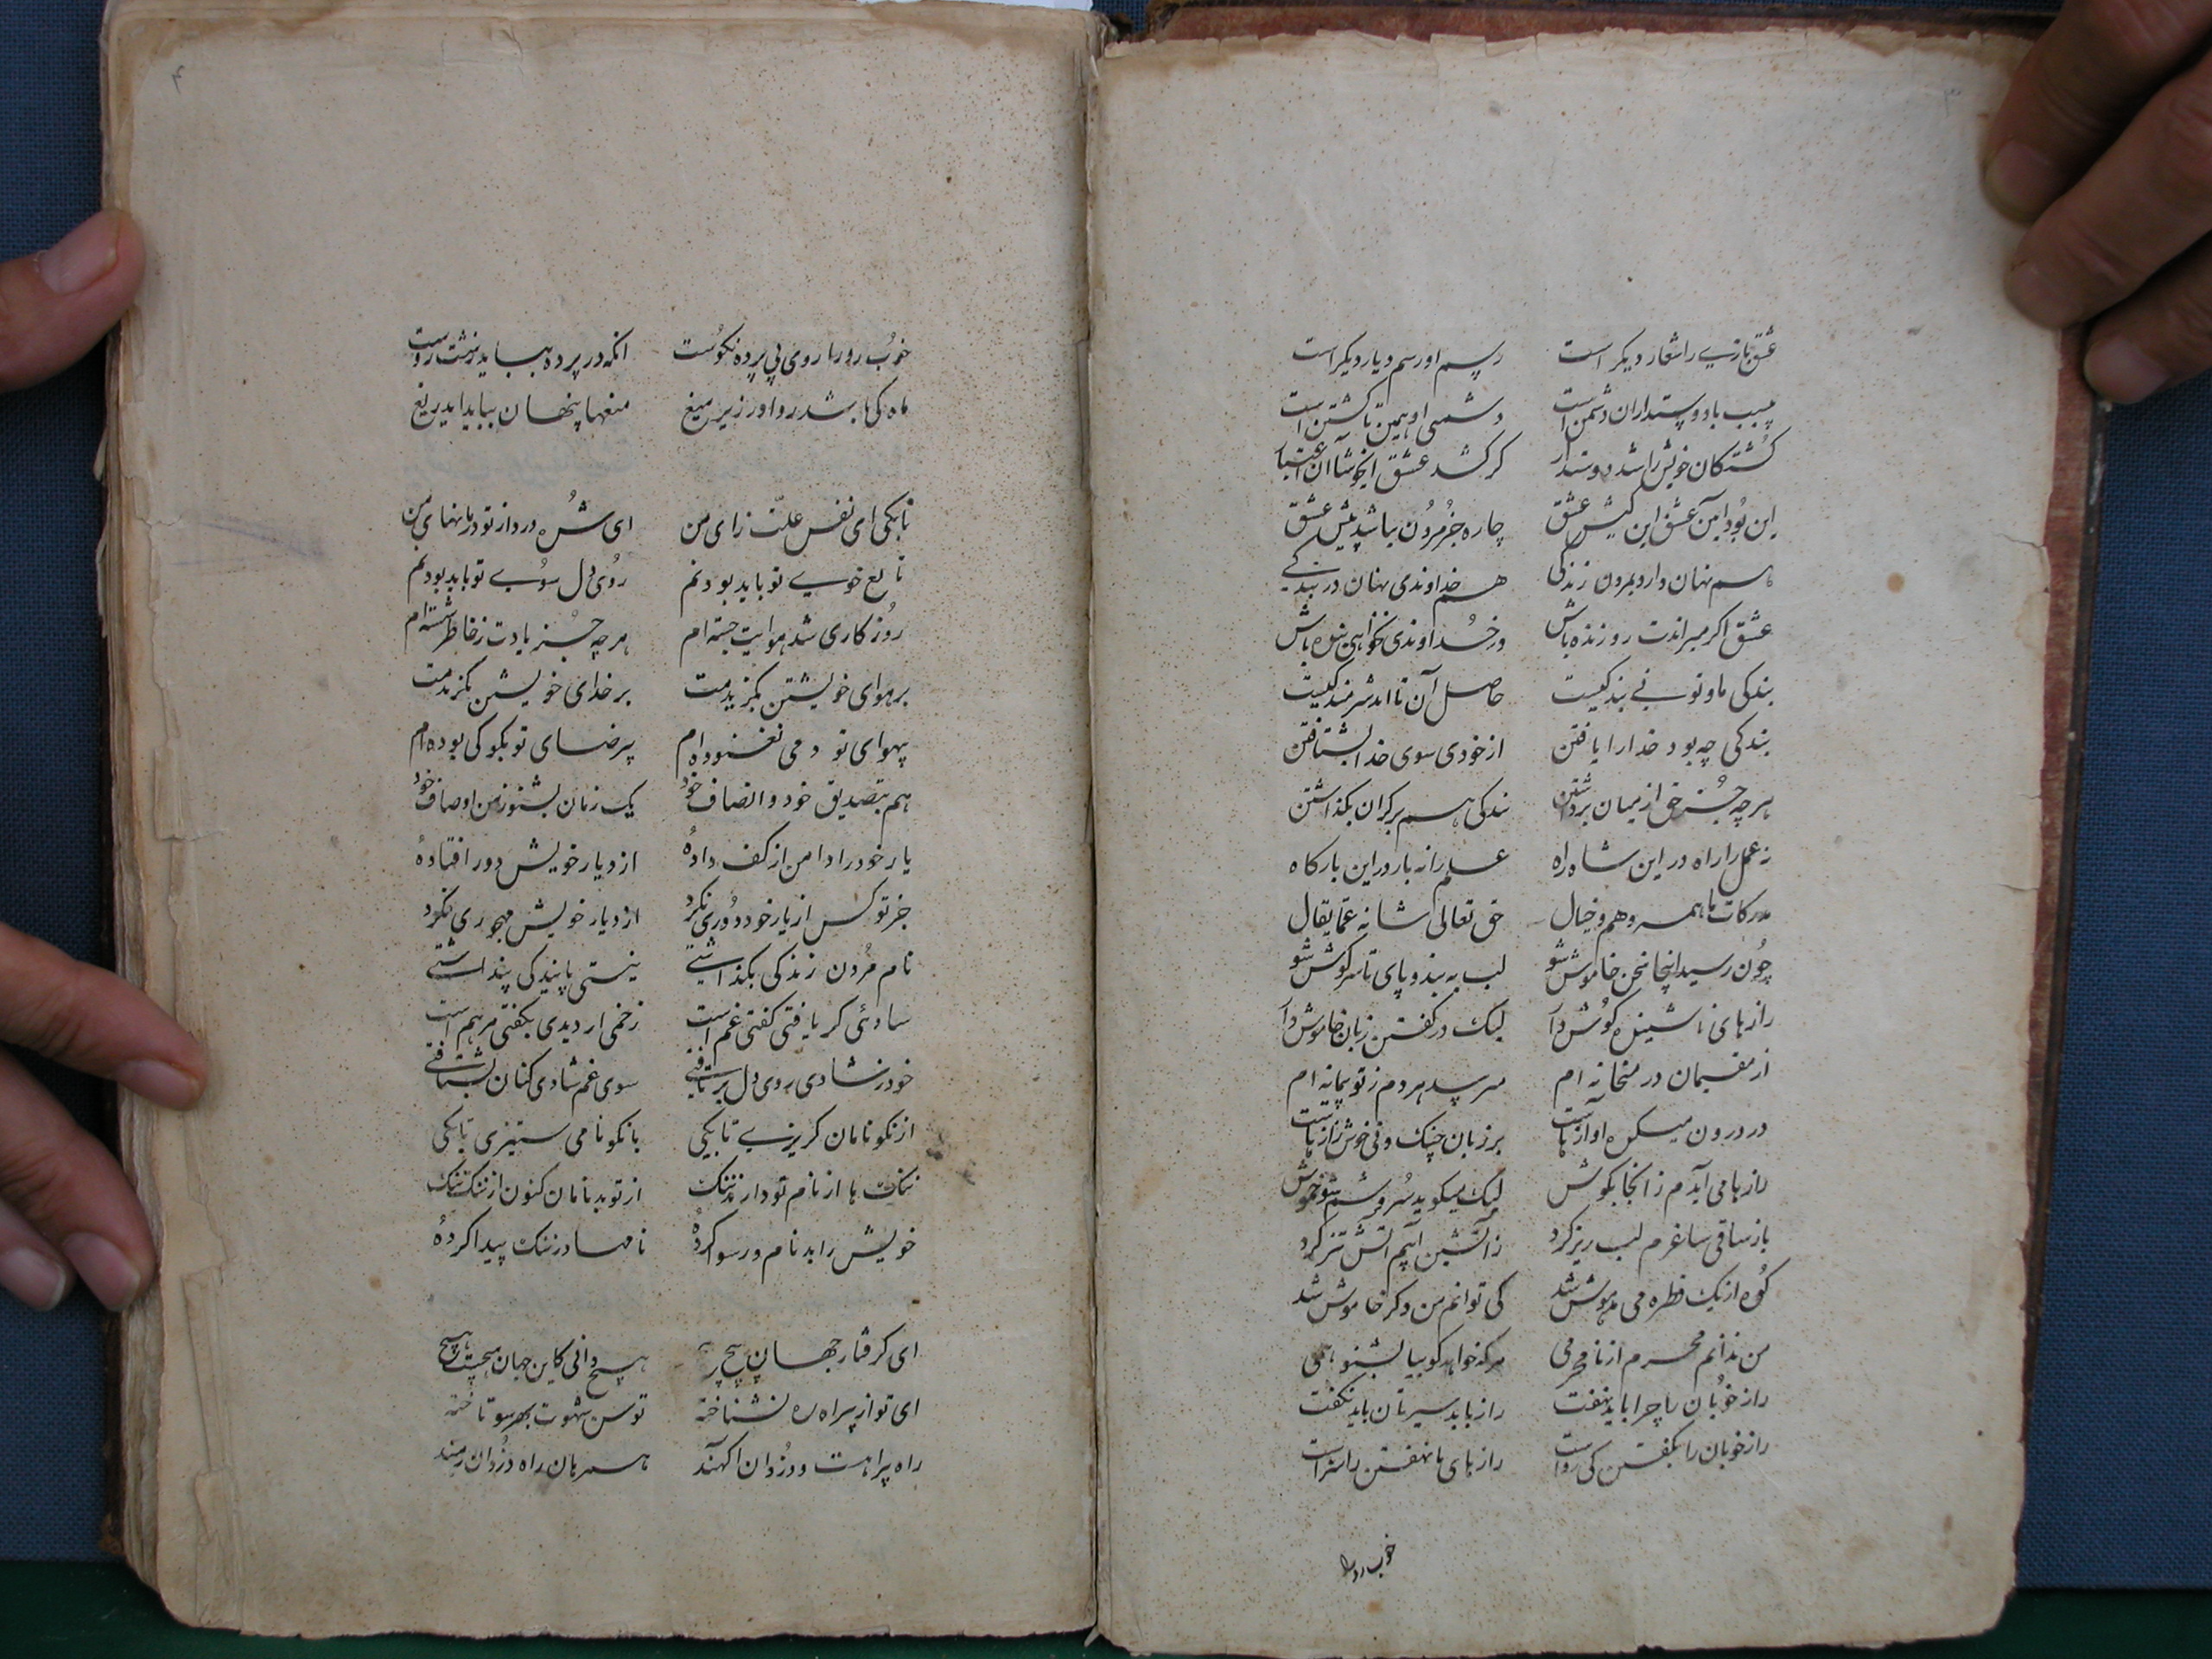 عشق بازی را شعار دیکر است رسم او رسم و دیار دیکر است
سبب با دوستداران دشمن است دشمنی او همین تا کشتن است
کشتکان خویش را شد دوستدار کر کشد عشق ای خوشا آن اعتبار
این بود آیین عشق این کیش عشق چاره جز مردن نباشد پیش عشق
هم نهان دارد بمردن زندکی هم خداوندی نهان در بندکی
عشق اکر میراندت رو زنده باش ور خداوندی نخواهی بنده باش
بندکی ما و تو نی بندکیست حاصل آن شرمندکیست
بندکی چه بود خدا را یافتن از خودی سوی خدا بشتافتن
هر چه جز حق از میان برداشتن بندکی هم بر کران بکذاشتن
نه عمل را راه در این شاه راه علم را نه بار در این بارکاه
مدرکات ما همه وهم و خیال حق تعالی شانه عما یقال
چون رسید اینجا سخن خاموش شو لب به بند و پای تا سر کوش شو
رازهای ناشنیده کوش دار لیک در کفتن زبان خاموش دار
از مقیمان در میخانه ام میرسد هر دم ز تو پیمانه ام
در درون میکده آوازهاست بر زبان چنک و نی خوش رازهاست
رازها می آیدم زانجا بکوش لیک میکوید سروشم شو خموش
باز ساقی ساغرم لب ریز کرد زآتشین آبم آتش تیز کرد
کوه از یک قطره می مدهوش شد کی توانم من دکر خاموش شد
من ندانم محرم از نامحرمی هر که خواهد کو بیا بشنو همی
راز خوبان را چرا باید نهفت راز باید سیرتان باید نکفت
راز خوبان را بکفتن کی رواست رازهای ما نهفتن را سزاست
خوب رو را
خوب رو را روی بی پرده نکوست آنکه در پرده بباید زشت روست
ماه کی باشد روا در زیر میغ میغها پنهان بباید ای دریغ
تا بکی ای نفس علت زای من ای شده درد از تو درمانهای من
تابع خوی تو باید بودنم روی دل سوی تو باید بودنم
روزکاری شد هوایت جسته ام هر چه جز یادت ز خاطر شسته ام
بر هوای خویشتن بکزیدمت بر خدای خویشتن بکزیدمت
بهوای تو دمی نغنوده ام برضای تو بکو کی بوده ام
هم بتصدیق خود و انصاف خود یک زمان بشنو ز من اوصاف خود
یار خود را دامن از کف دادهٔ از دیار خویش دور افتادهٔ
جز تو کس از یار خود دوری نکرد از دیار خویش مهجوری نکرد
نام مردن زندکی بکذاشتی نیستی پایندکی پنداشتی
شادئی کر یافتی کفتی غم است زخمی ار دیدی بکفتی مرهم است
خود ز شادی روی دل برتافتی سوی غم شادی کنان بشتافتی
از نکونامان کریزی تا بکی با نکونامی ستیزی تا بکی
ننک ها از نام تو دارند ننک از تو بدنامان کنون از ننک ننک
خویش را بدنام و رسوا کردهٔ نامها در ننک پیدا کردهٔ
ای کرفتار جهان پیچ پیچ هیچ دانی کاین جهان هیچست هیچ
ای تو از بیراه ره نشناخته توسن شهوت بهر سو تاخته
راه بیراهست و دزدان آکهند همرهان راه دزدان رهند